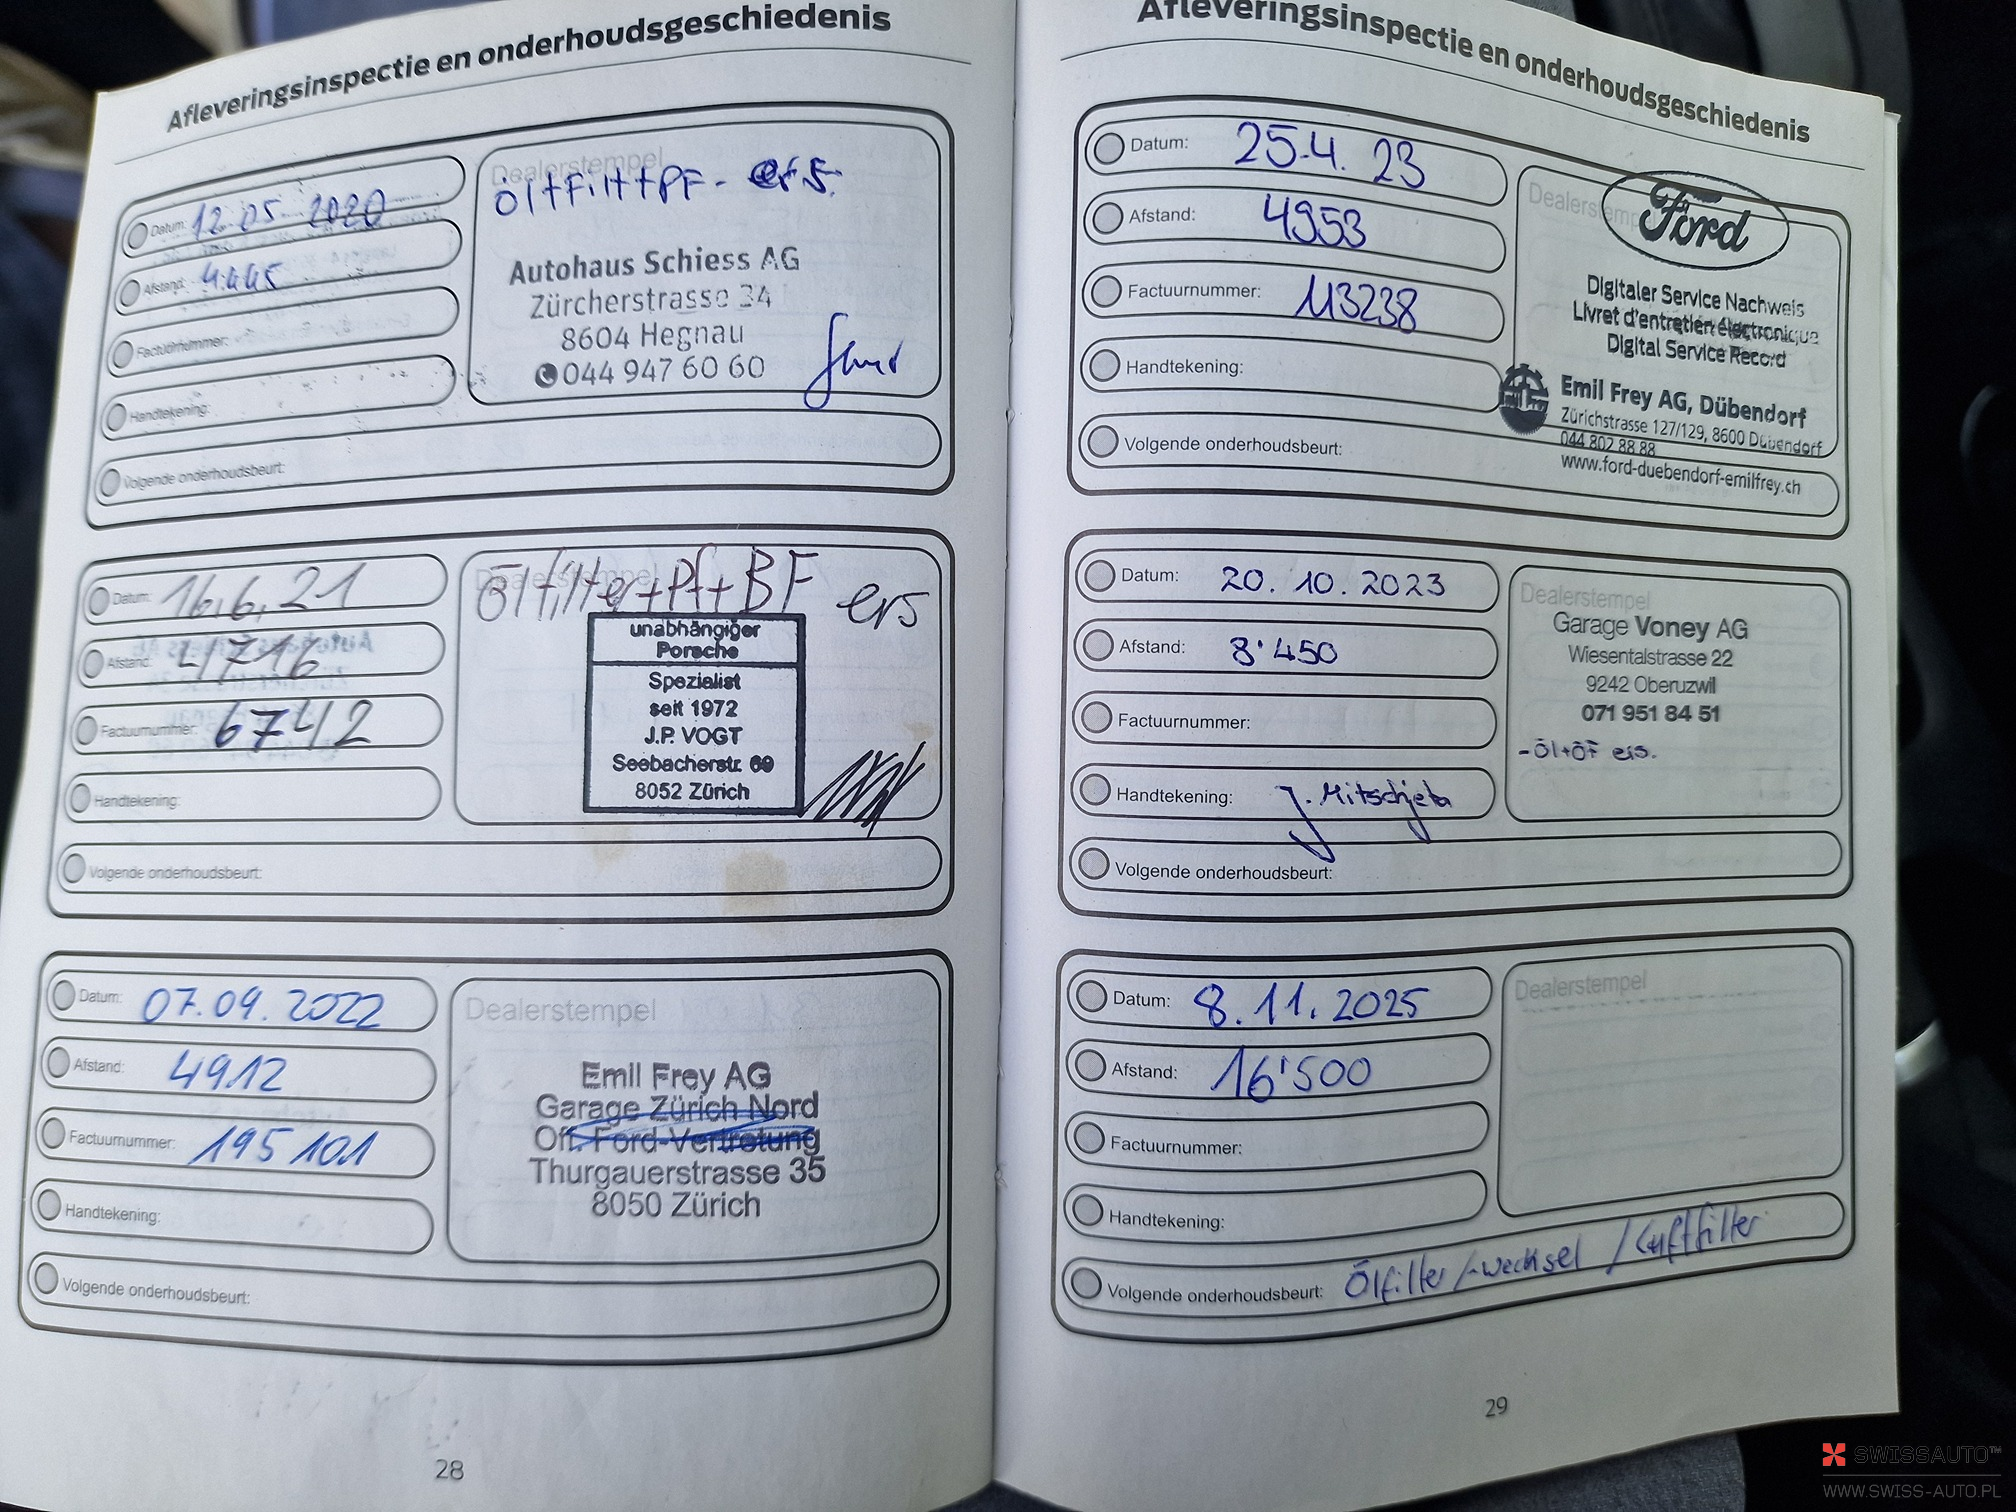 Afleveringsinspectie en onderhoudsgeschiedenis
Datum: 12.05.2020
Afstand: 4.445
Factuurnummer:
Handtekening:
Volgende onderhoudsbeurt:
Dealerstempel
Öl+Filt+PF- ers.
Autohaus Schiess AG
Zürcherstrasse 34
8604 Hegnau
044 947 60 60
Datum: 16.6.21
Afstand: 4716
Factuurnummer: 6742
Handtekening:
Volgende onderhoudsbeurt:
Dealerstempel
Ölfilter+Pf+BF ers
unabhängiger
Porsche
Spezialist
seit 1972
J.P. VOGT
Seebacherstr. 69
8052 Zürich
Datum: 07.09.2022
Afstand: 4912
Factuurnummer: 195101
Handtekening:
Volgende onderhoudsbeurt:
Dealerstempel
Emil Frey AG
Garage Zürich Nord
Off. Ford-Vertretung
Thurgauerstrasse 35
8050 Zürich
28
Afleveringsinspectie en onderhoudsgeschiedenis
Datum: 25.4.23
Afstand: 4953
Factuurnummer: 113238
Handtekening:
Volgende onderhoudsbeurt:
Dealerstempel
Ford
Digitaler Service Nachweis
Livret d'entretien électronique
Digital Service Record
Emil Frey
Emil Frey AG, Dübendorf
Zürichstrasse 127/129, 8600 Dübendorf
044 802 88 88
www.ford-duebendorf-emilfrey.ch
Datum: 20.10.2023
Afstand: 8'450
Factuurnummer:
Handtekening: J.
Volgende onderhoudsbeurt:
Dealerstempel
Garage Voney AG
Wiesentalstrasse 22
9242 Oberuzwil
071 951 84 51
-Öl+ÖF ers.
Datum: 8.11.2025
Afstand: 16'500
Factuurnummer:
Handtekening:
Volgende onderhoudsbeurt: Ölfilter/-wechsel / Luftfilter
Dealerstempel
29
SWISSAUTO™
WWW.SWISS-AUTO.PL